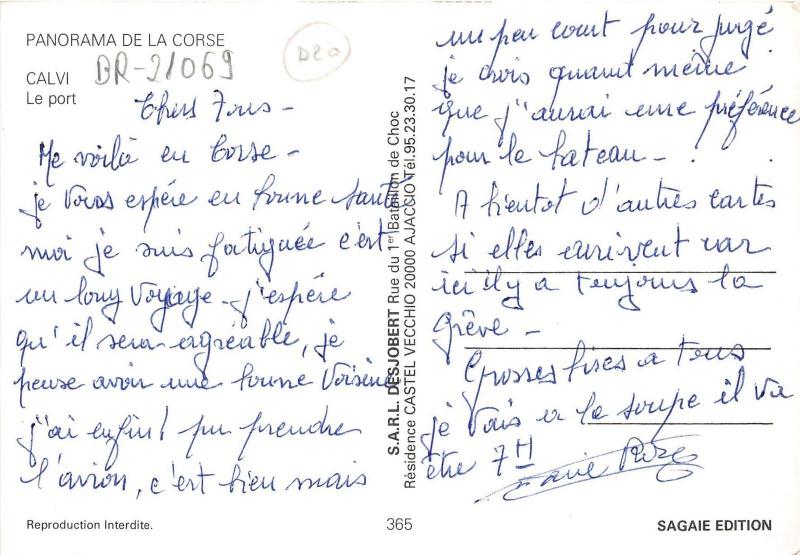 PANORAMA DE LA CORSE
CALVI
Le port
BR-21069
D20
Chers Tous -
Me voilà en Corse -
je Vous espère en bonne santé
moi je suis fatiguée c'est
un long Voyage - j'espère
qu'il sera agréable, je
pense avoir une bonne Voisine
j'ai enfin! pu prendre
l'avion, c'est bien mais
un peu court pour jugé
je crois quant même
que j'aurai une préférence
pour le bateau - .
A bientot d'autres cartes
si elles arrivent car
ici il y a toujours la
Grève -
Grosses bises a tous
je Vais a la soupe il va
être 7H
S.A.R.L. DESJOBERT Rue du 1er Bataillon de Choc
Résidence CASTEL VECCHIO 20000 AJACCIO Tél.95.23.30.17
Reproduction Interdite.
365
SAGAIE EDITION